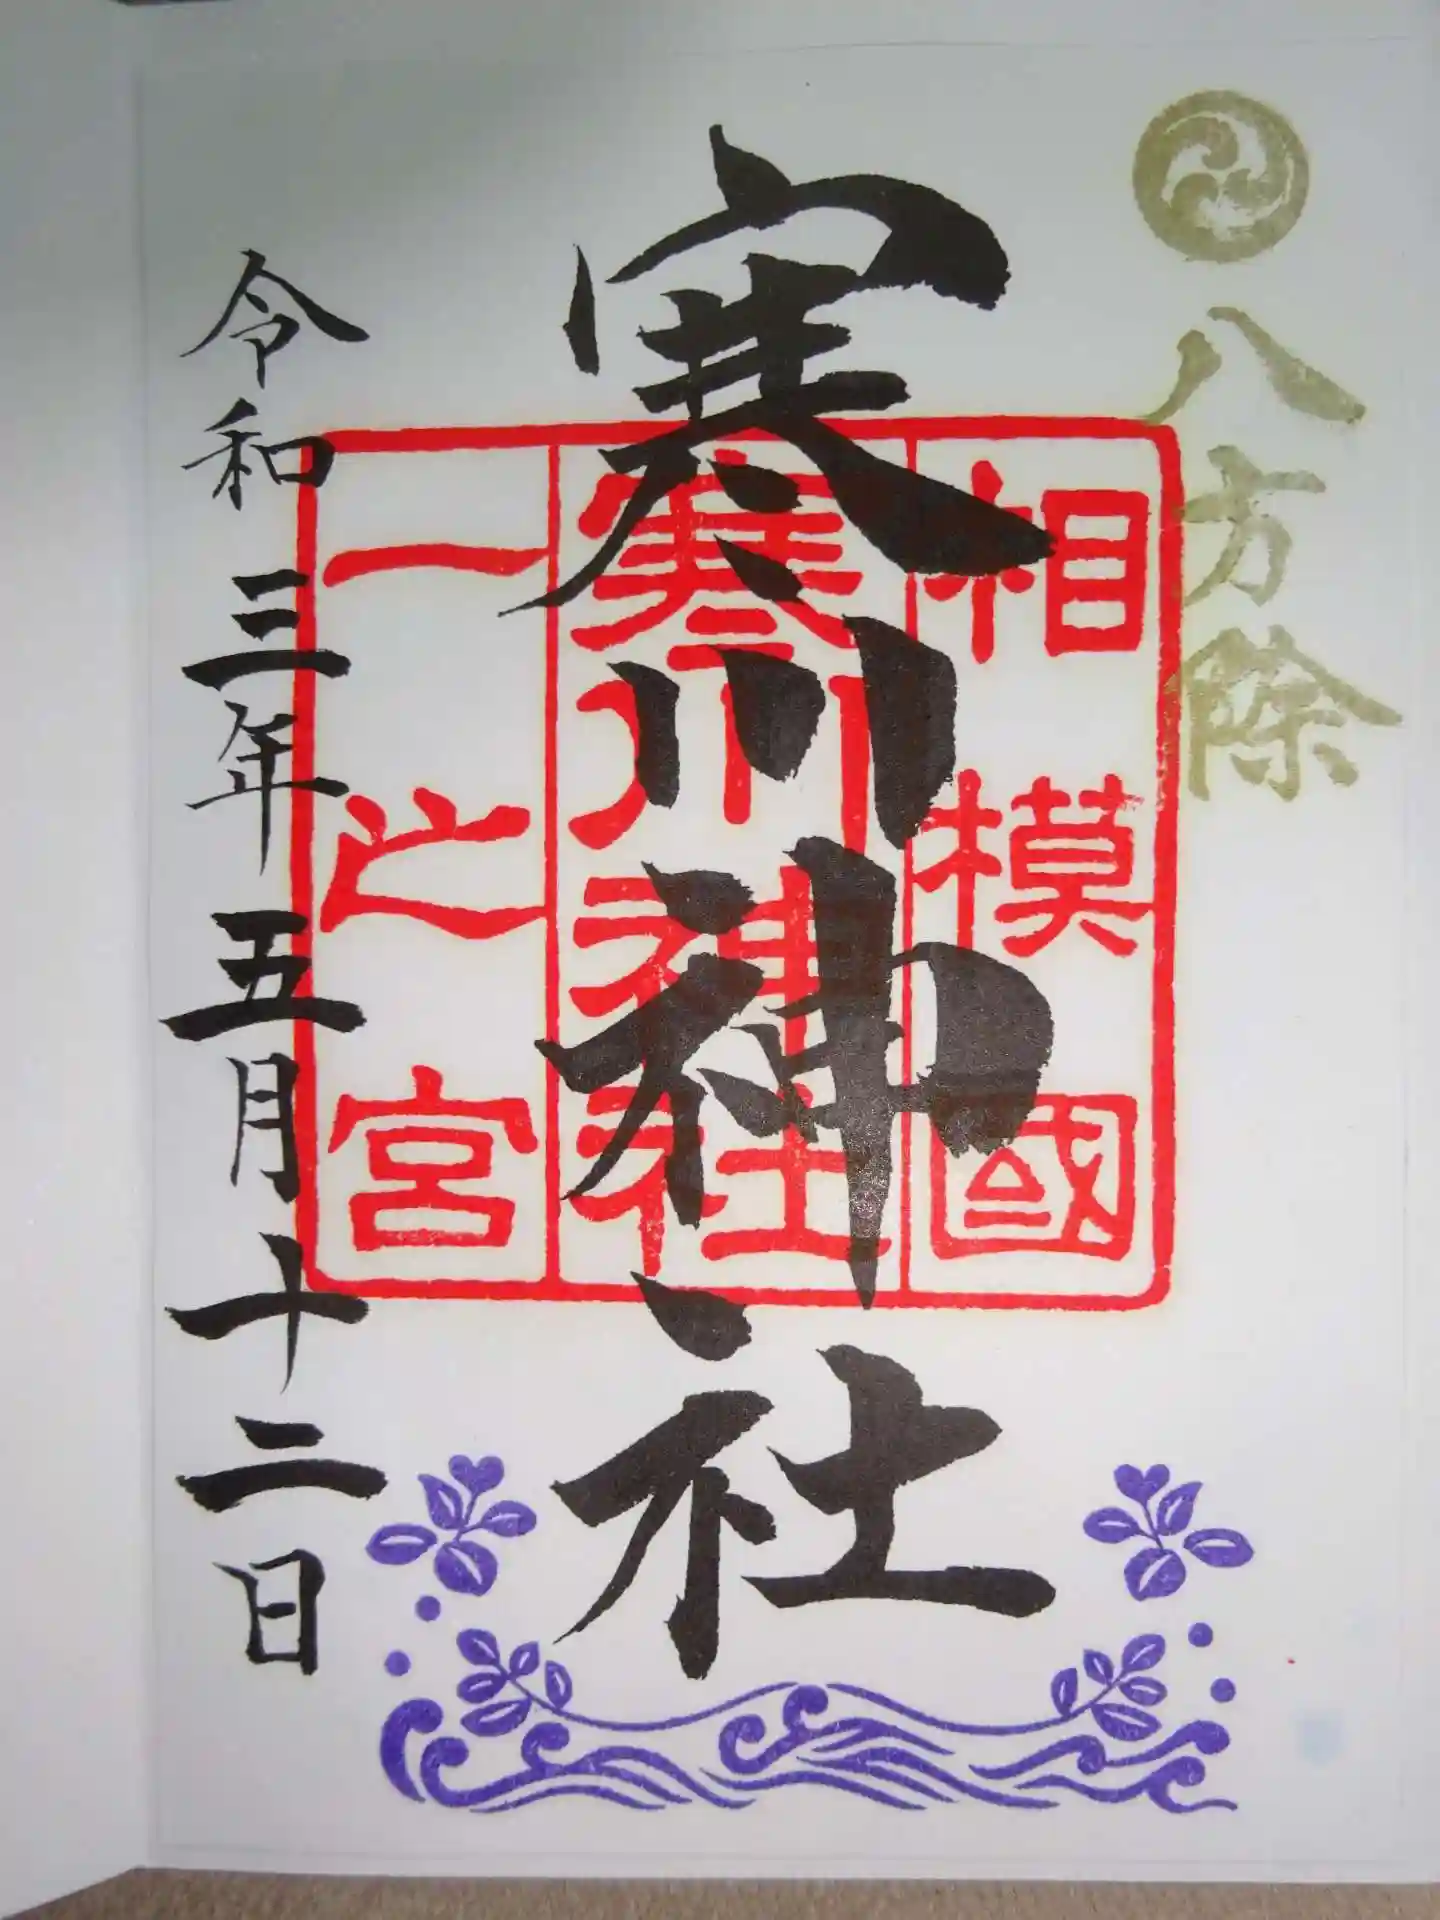 八方除
相模國
寒川神社
一之宮
寒川神社
令和三年五月十二日